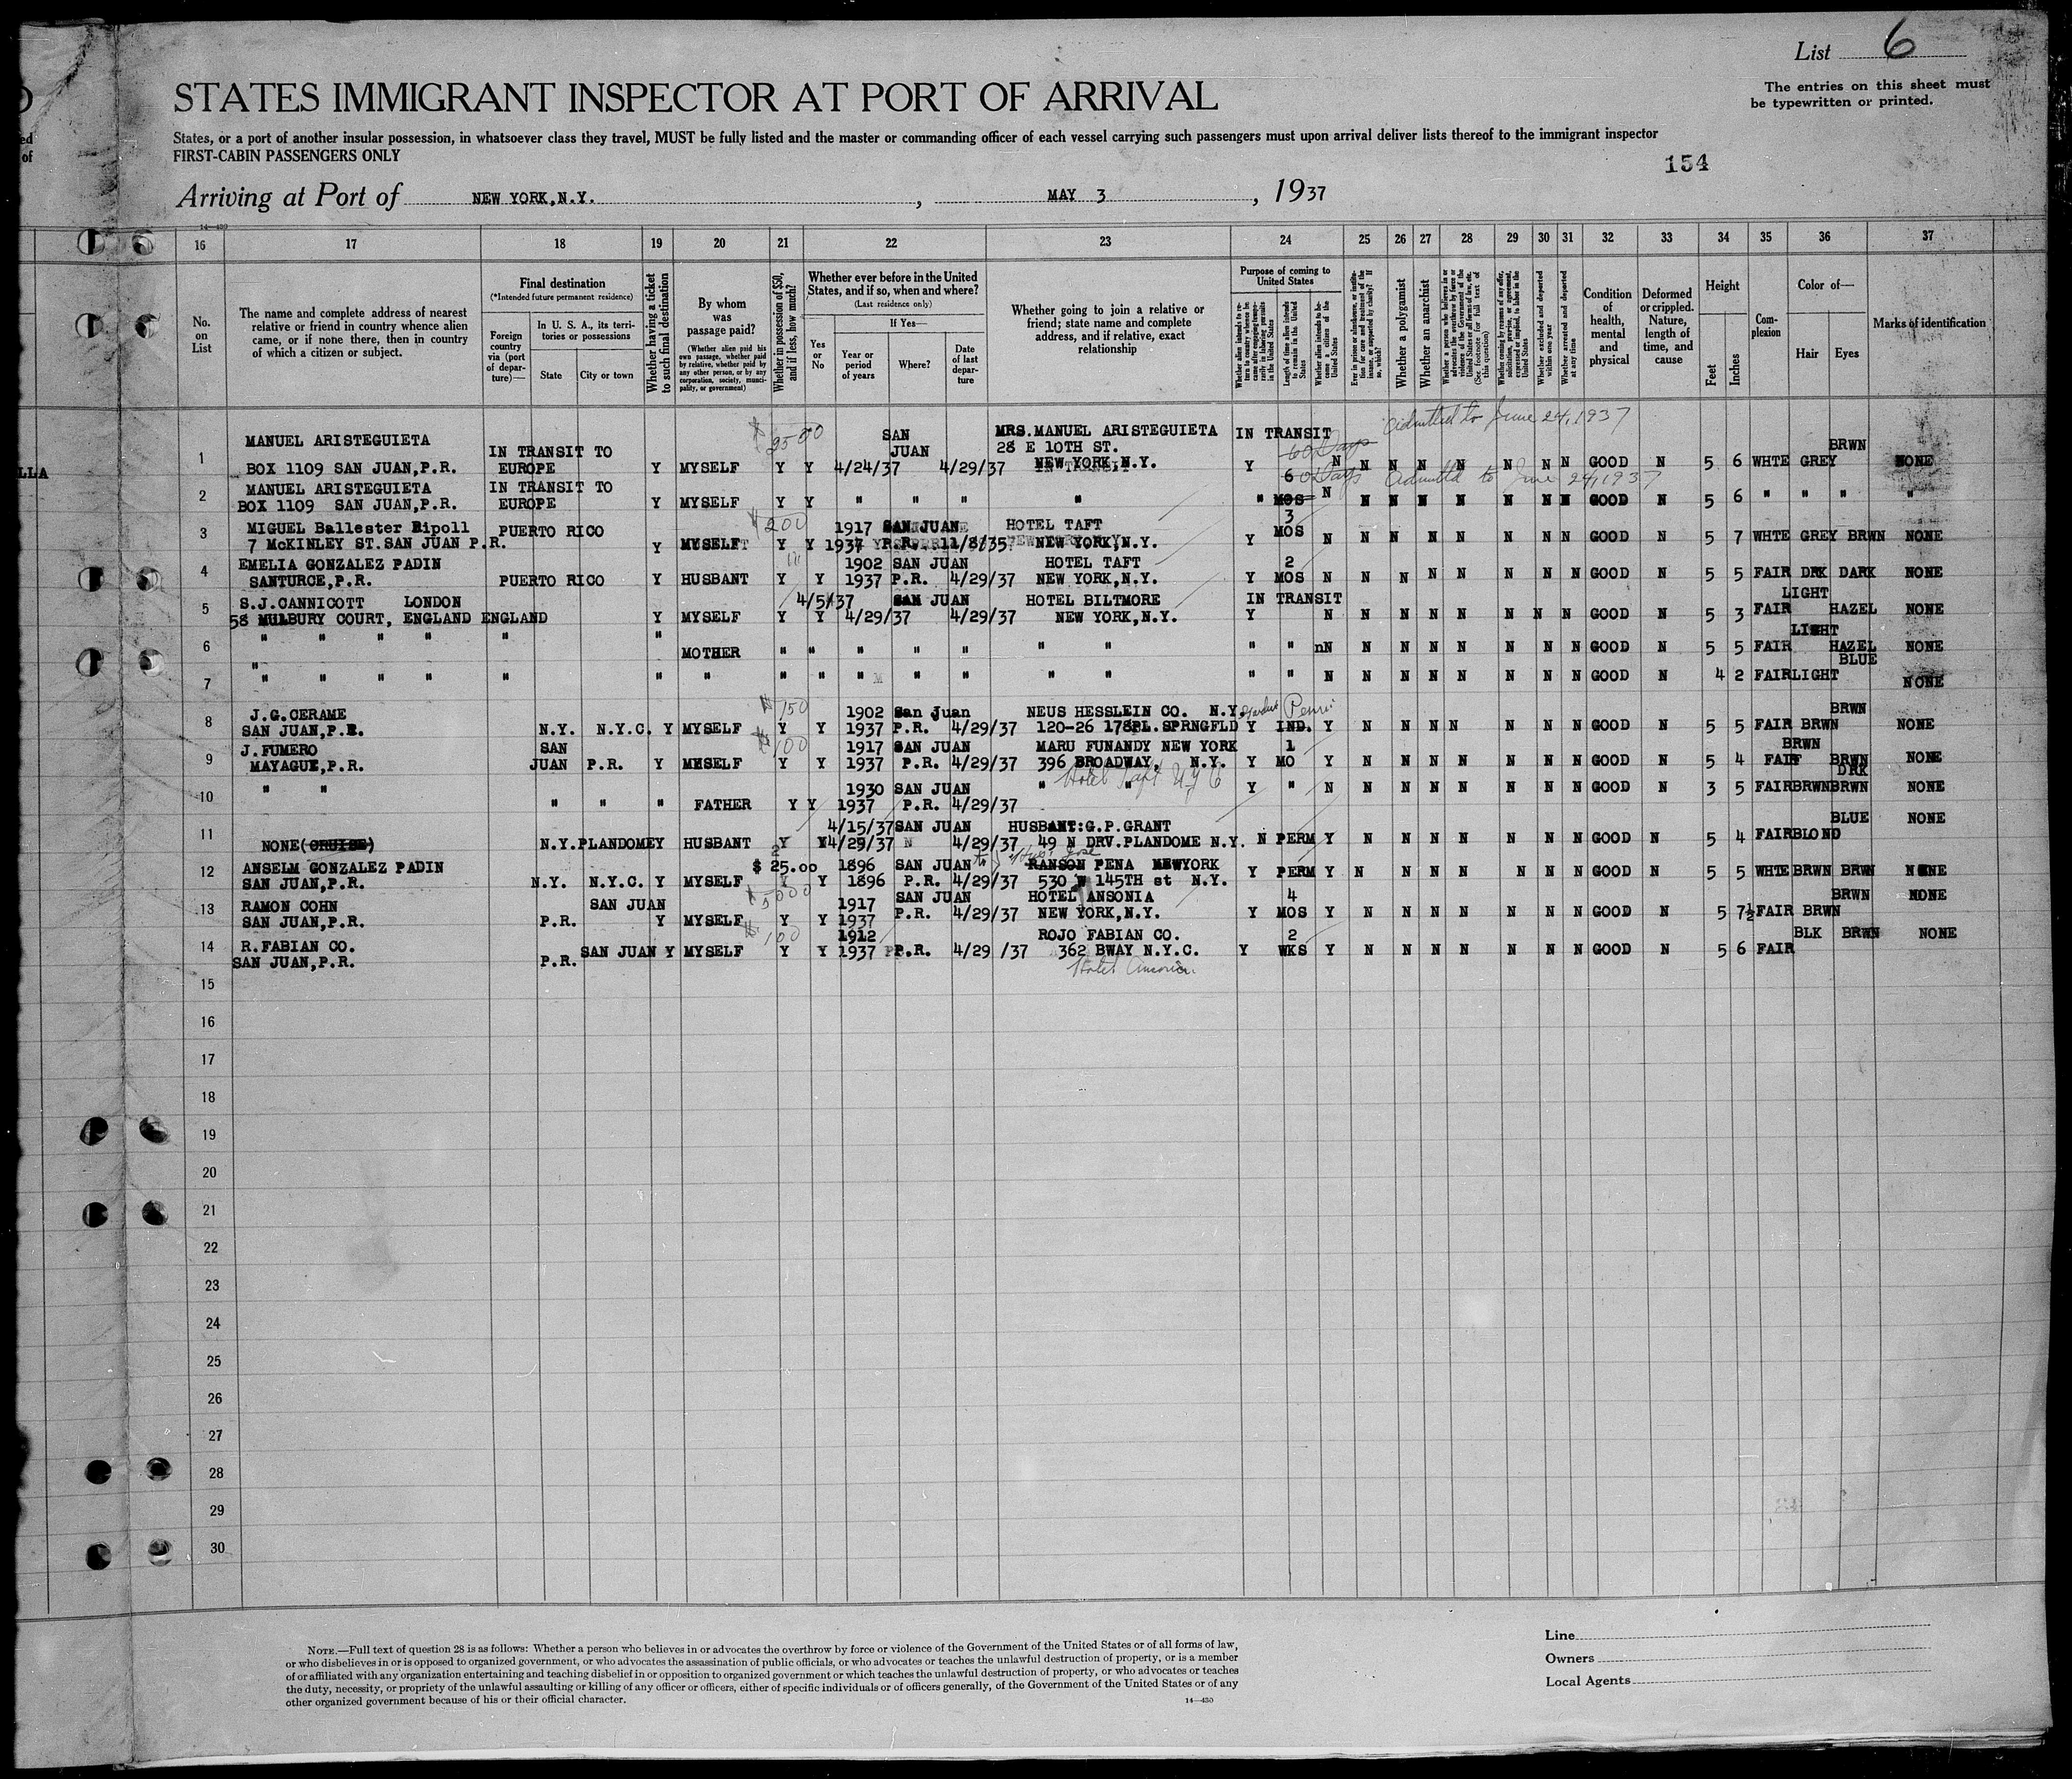 List 6
The entries on this sheet must
be typewritten or printed.
STATES IMMIGRANT INSPECTOR AT PORT OF ARRIVAL
States, or a port of another insular possession, in whatsoever class they travel, MUST be fully listed and the master or commanding officer of each vessel carrying such passengers must upon arrival deliver lists thereof to the immigrant inspector
FIRST-CABIN PASSENGERS ONLY
154
Arriving at Port of NEW YORK,N.Y. , MAY 3 , 1937
16 17 18 19 20 21 22 23 24 25 26 27 28 29 30 31 32 33 34 35 36 37
No. on List
The name and complete address of nearest relative or friend in country whence alien came, or if none there, then in country of which a citizen or subject.
Final destination
(*Intended future permanent residence)
Foreign country via (port of departure)—
In U. S. A., its territories or possessions
State
City or town
Whether having a ticket to such final destination
By whom was passage paid?
(Whether alien paid his own passage, whether paid by relative, whether paid by any other person, or by any corporation, society, municipality, or government)
Whether in possession of $50, and if less, how much?
Whether ever before in the United States, and if so, when and where?
(Last residence only)
Yes or No
If Yes—
Year or period of years
Where?
Date of last departure
Whether going to join a relative or friend; state name and complete address, and if relative, exact relationship
Purpose of coming to United States
Length of time alien intends to remain in the United States
Whether alien intends to become a citizen of the United States
Whether a polygamist
Whether an anarchist
Whether excluded and deported within one year
Whether arrested and deported at any time
Condition of health, mental and physical
Deformed or crippled. Nature, length of time, and cause
Height
Feet
Inches
Complexion
Color of—
Hair
Eyes
Marks of identification
admitted to June 24, 1937
1 MANUEL ARISTEGUIETA BOX 1109 SAN JUAN,P.R. IN TRANSIT TO EUROPE Y MYSELF Y Y 4/24/37 SAN JUAN 4/29/37 MRS.MANUEL ARISTEGUIETA 28 E 10TH ST. NEW YORK,N.Y. IN TRANSIT Y 60 Days N N N N N N N N GOOD N 5 6 WHTE GREY BRWN NONE
2 MANUEL ARISTEGUIETA BOX 1109 SAN JUAN,P.R. IN TRANSIT TO EUROPE Y MYSELF Y Y " " " " " 60 Days MOS N Admitted to June 24, 1937 N N N N N N N GOOD N 5 6 " " " "
3 MIGUEL Ballester Ripoll 7 McKINLEY ST.SAN JUAN P.R. PUERTO RICO Y MYSELF $200 Y Y 1917 1937 SAN JUAN P.R. HOTEL TAFT NEW YORK,N.Y. Y 3 MOS N N N N N N N N GOOD N 5 7 WHTE GREY BRWN NONE
4 EMELIA GONZALEZ PADIN SANTURCE,P.R. PUERTO RICO Y HUSBANT Y Y 1902 1937 SAN JUAN P.R. 4/29/37 HOTEL TAFT NEW YORK,N.Y. Y 2 MOS N N N N N N N N GOOD N 5 5 FAIR DRK DARK NONE
5 S.J.CANNICOTT LONDON 58 MULBURY COURT, ENGLAND ENGLAND Y MYSELF Y Y 4/5/37 4/29/37 SAN JUAN 4/29/37 HOTEL BILTMORE NEW YORK,N.Y. IN TRANSIT Y N N N N N N N N GOOD N 5 3 FAIR LIGHT HAZEL NONE
6 " " " " " " MOTHER " " " " " " " " " nN N N N N N N N GOOD N 5 5 FAIR LIGHT HAZEL NONE
7 " " " " " " " " " " " " " " " " " N N N N N N N N GOOD N 4 2 FAIR LIGHT BLUE NONE
8 J.G.CERAME SAN JUAN,P.R. N.Y. N.Y.C. Y MYSELF $150 Y Y 1902 1937 San Juan P.R. 4/29/37 NEUS HESSLEIN CO. N.Y. 120-26 178PL.SPRNGFLD Y IND. Y N N N N N N N GOOD N 5 5 FAIR BRWN BRWN NONE
9 J.FUMERO MAYAGUE,P.R. SAN JUAN P.R. Y MYSELF $100 Y Y 1917 1937 SAN JUAN P.R. 4/29/37 MARU FUNANDY NEW YORK 396 BROADWAY, N.Y. Y 1 MO Y N N N N N N N GOOD N 5 4 FAIR BRWN BRWN NONE
Hotel Taft N Y C
10 " " " " " FATHER Y Y 1930 1937 SAN JUAN P.R. 4/29/37 " " Y " N N N N N N N N GOOD N 3 5 FAIR BRWN DRK BRWN NONE
11 NONE(CRUISE) N.Y. PLANDOME Y HUSBANT Y Y 4/15/37 4/29/37 SAN JUAN 4/29/37 HUSBANT:G.P.GRANT 49 N DRV.PLANDOME N.Y. N PERM Y N N N N N N N GOOD N 5 4 FAIR BLOND BLUE NONE
12 ANSELM GONZALEZ PADIN SAN JUAN,P.R. N.Y. N.Y.C. Y MYSELF $ 25.00 Y Y 1896 1896 SAN JUAN P.R. 4/29/37 RANSON PENA NEWYORK 530 W 145TH st N.Y. Y PERM Y N N N N N N N GOOD N 5 5 WHTE BRWN BRWN NONE
13 RAMON COHN SAN JUAN,P.R. P.R. SAN JUAN Y MYSELF $5000 Y Y 1917 1937 SAN JUAN P.R. 4/29/37 HOTEL ANSONIA NEW YORK,N.Y. Y 4 MOS Y N N N N N N N GOOD N 5 7½ FAIR BRWN BRWN NONE
14 R.FABIAN CO. SAN JUAN,P.R. P.R. SAN JUAN Y MYSELF $100 Y Y 1912 1937 P.R. 4/29/37 ROJO FABIAN CO. 362 BWAY N.Y.C. Y 2 WKS Y N N N N N N N GOOD N 5 6 FAIR BLK BRWN NONE
Hotel
15
16
17
18
19
20
21
22
23
24
25
26
27
28
29
30
NOTE.—Full text of question 28 is as follows: Whether a person who believes in or advocates the overthrow by force or violence of the Government of the United States or of all forms of law,
or who disbelieves in or is opposed to organized government, or who advocates the assassination of public officials, or who advocates or teaches the unlawful destruction of property, or is a member
of or affiliated with any organization entertaining and teaching disbelief in or opposition to organized government or which teaches the unlawful destruction of property, or who advocates or teaches
the duty, necessity, or propriety of the unlawful assaulting or killing of any officer or officers, either of specific individuals or of officers generally, of the Government of the United States or of any
other organized government because of his or their official character.
14—430
Line
Owners
Local Agents